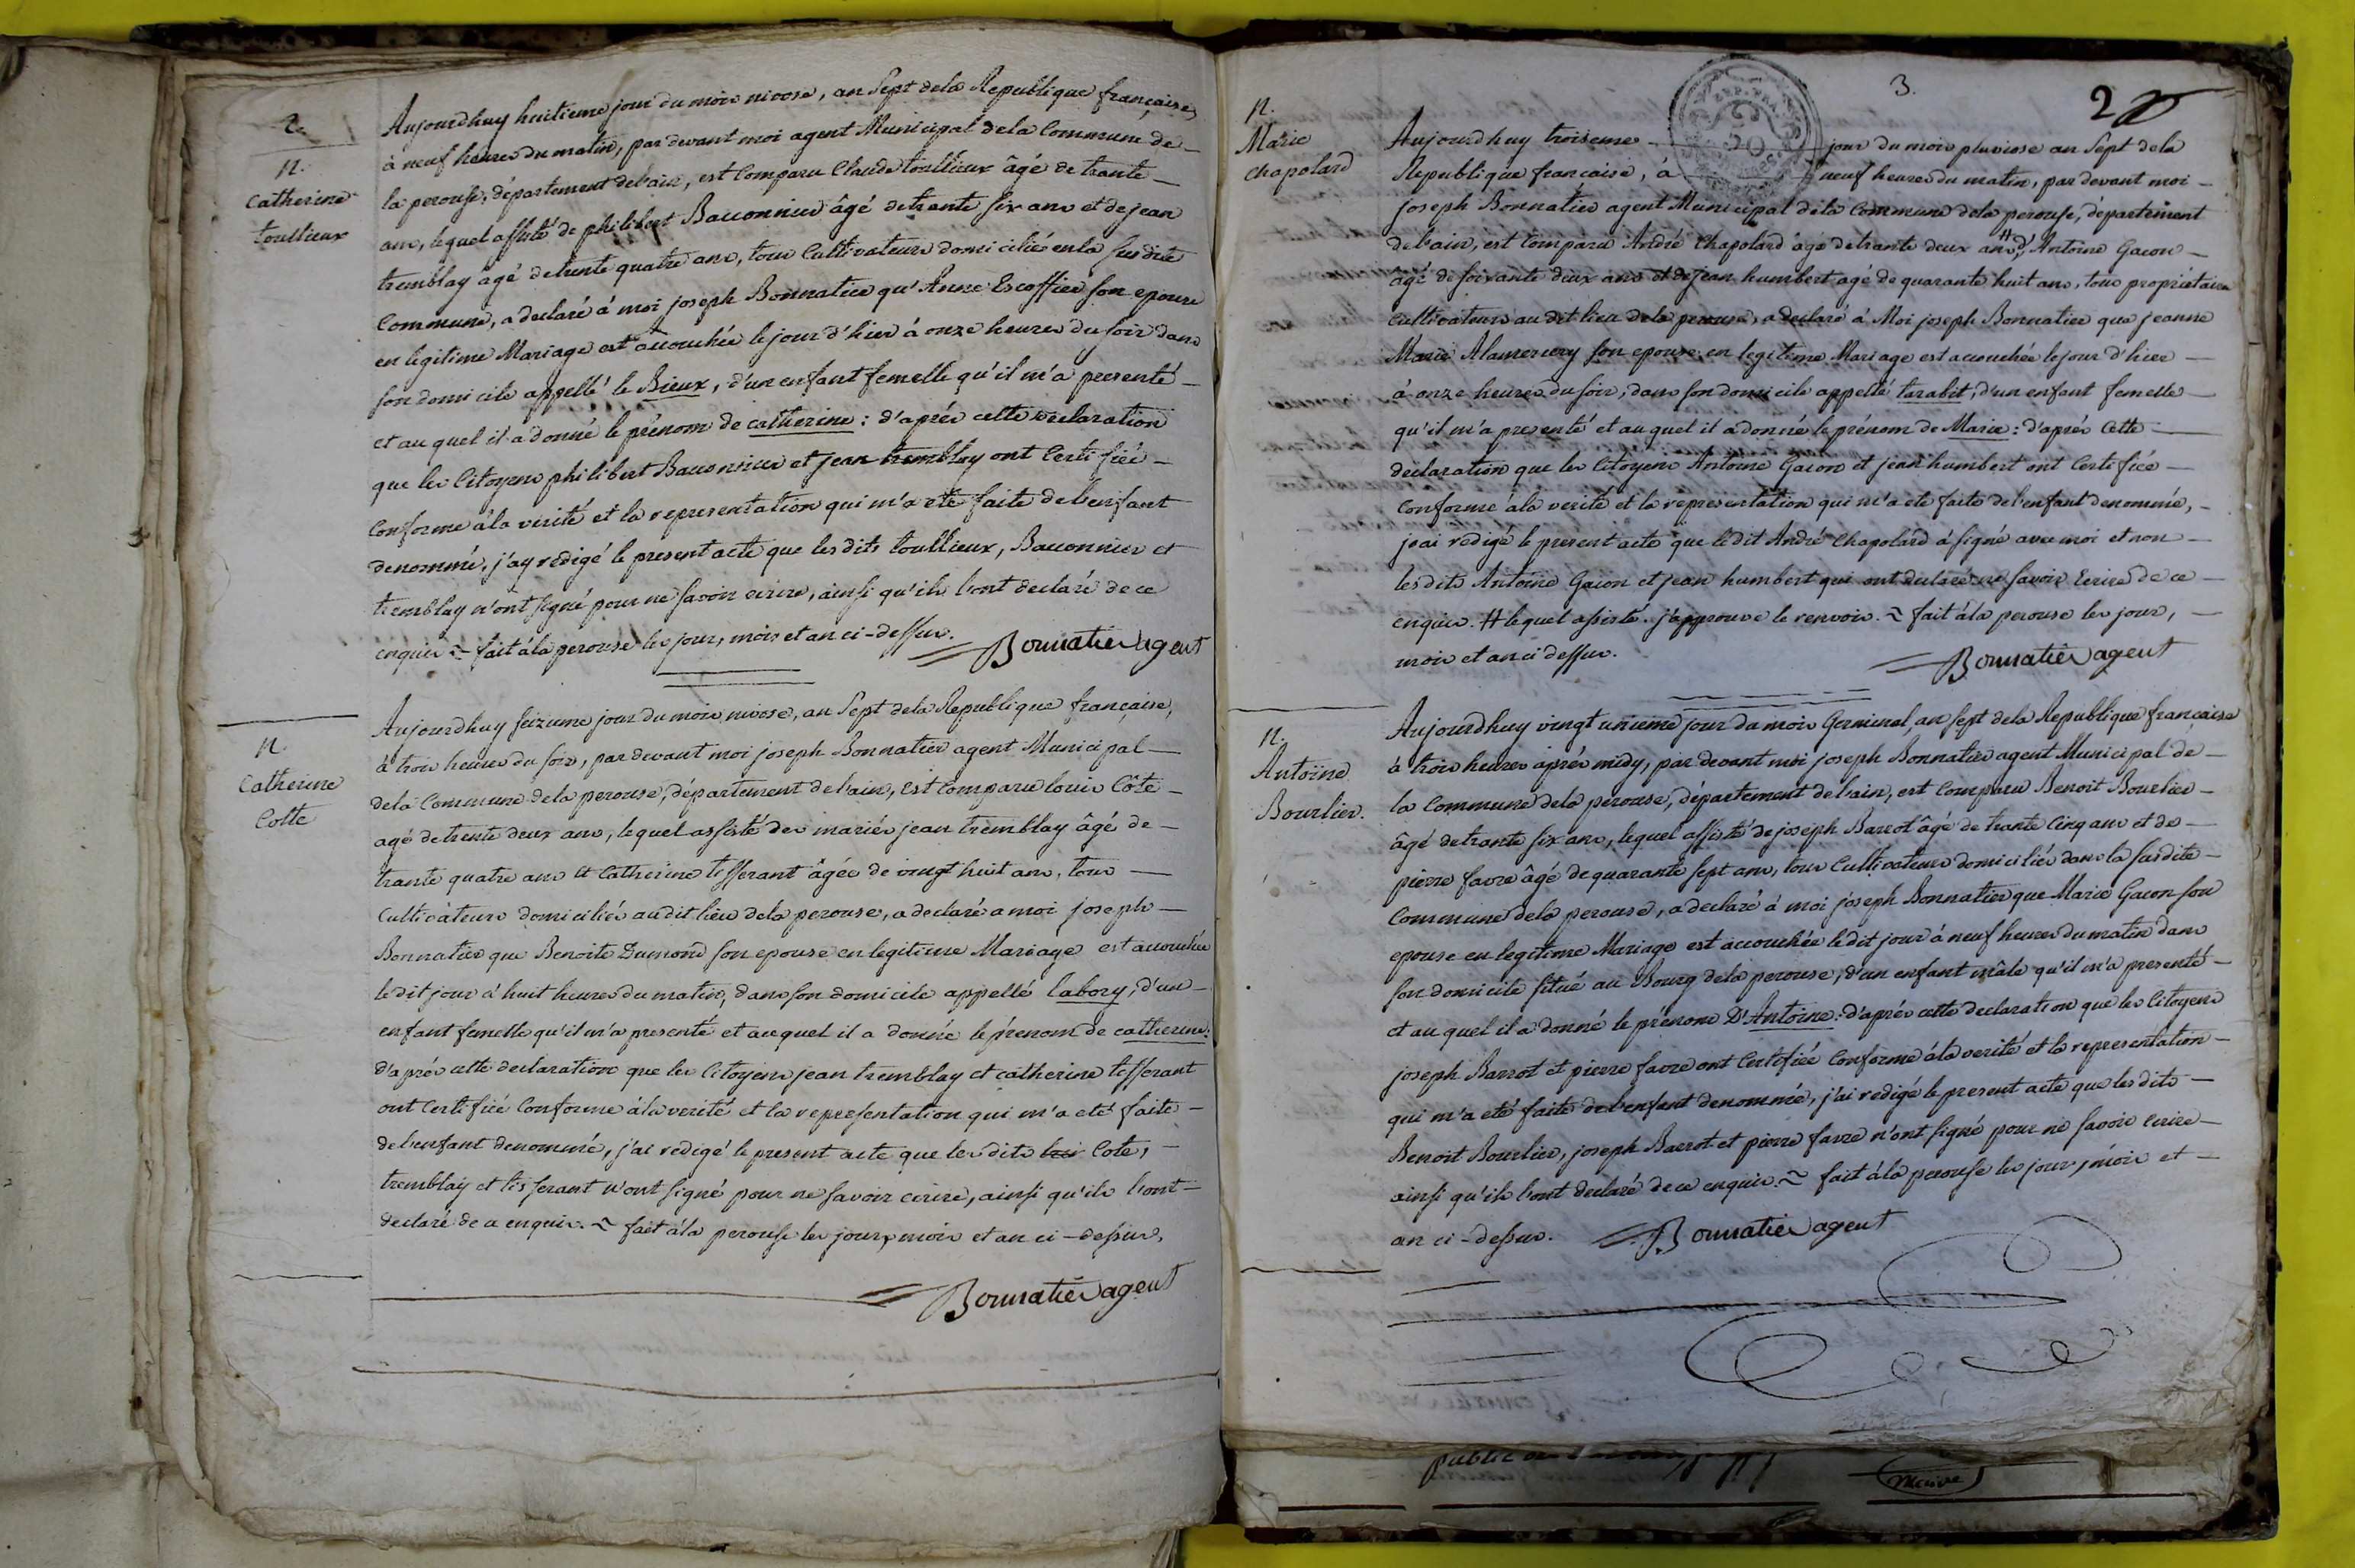 2.
N.
Catherine
toullieux
Aujourdhuy huitieme jour du mois nivose, an Sept dela Republique française,
à neuf heures du matin, par devant moi agent Municipal dela Commune de
la perouse, département de l'ain, est Comparu Claude toullieux âgé de trante
ans, lequel assisté de philibert Bauonnier âgé de trante six ans et de jean
tremblay âgé de trente quatre ans, tous Cultivateurs domiciliés en la susdite
Commune, a declaré à moi joseph Bonnatier qu'Anne Escoffier son epouse
en legitime Mariage est accouchée le jour d'hier à onze heures du soir dans
son domicile appellé le Bieux, d'un enfant femelle qu'il m'a presenté
et au quel il a donné le prénom de catherine : d'après cette declaration
que les Citoyens philibert Bauonnier et jean tremblay ont Certifiée
Conforme à la verité et la representation qui m'a eté faite de l'enfant
denommé, j'ay redigé le present acte que les dits toullieux, Bauonnier et
tremblay n'ont signé pour ne savoir ecrire, ainsi qu'ils l'ont declaré de ce
enquis ~ fait à la perouse les jour, mois et an ci-dessus.
Bonnatier agent
N.
Catherine
Cotte
Aujourdhuy seizieme jour du mois nivose, an Sept dela Republique française,
à trois heures du soir, par devant moi joseph Bonnatier agent Municipal
dela Commune dela perouse, département de l'ain, est Comparu louis Côte
agé de trente deux ans, lequel assisté des mariés jean tremblay âgé de
trante quatre ans et Catherine tisserant âgée de vingt huit ans, tous
Cultivateurs domiciliés au dit lieu dela perouse, a declaré a moi joseph
Bonnatier que Benoite Dumond son epouse en legitime Mariage est accouchée
le dit jour à huit heures du matin, dans son domicile appellé labory, d'un
enfant femelle qu'il m'a presenté et auquel il a donné le prénom de catherine:
d'après cette declaration que les Citoyens jean tremblay et catherine tisserant
ont Certifiée Conforme à la verité et la representation qui m'a eté faite
de l'enfant denommé, j'ai redigé le present acte que les dits Cote,
tremblay et tisserant n'ont signé pour ne savoir ecrire, ainsi qu'ils l'ont
declaré de ce enquis. ~ fait à la perouse les jour, mois et an ci-dessus,
Bonnatier agent
3.
2
N.
Marie
chapolard
Aujourdhuy troisieme jour du mois pluviose an Sept dela
Republique francaise, à neuf heures du matin, par devant moi
joseph Bonnatier agent Municipal dela Commune dela perouse, département
de l'ain, est Comparu André Chapolard âgé de trante deux ans # d'Antoine Gacon
âgé de soixante deux ans et de jean humbert agé de quarante huit ans, tous propriétaires
cultivateurs au dit lieu dela perouse, a declaré à Moi joseph Bonnatier que jeanne
Marie Alamercery son epouse en legitime Mariage est accouchée le jour d'hier
à onze heures du soir, dans son domicile appellé tarabit, d'un enfant femelle
qu'il m'a presenté et au quel il a donné le prénom de Marie : d'après Cette
declaration que les Citoyens Antoine Gacon et jean humbert ont Certifiée
Conforme à la verité et la representation qui m'a eté faite de l'enfant denommé,
j'ai redigé le present acte que le dit André Chapolard à signé avec moi et non
les dits Antoine Gacon et jean humbert qui ont declaré ne savoir Ecrire de ce
enquis. # lequel assisté. j'approuve le renvoi. ~ fait à la perouse les jour,
mois et an ci dessus.
Bonnatier agent
N.
Antoine
Bourlier.
Aujourdhuy vingt unieme jour du mois Germinal, an sept dela Republique francaise
à trois heures après midy, par devant moi joseph Bonnatier agent Municipal de
la Commune dela perouse, département de l'ain, est Comparu Benoit Bourlier
âgé de trante six ans, lequel assisté de joseph Barrot âgé de trante Cinq ans et de
pierre favre âgé de quarante sept ans, tous Cultivateurs domiciliés dans la susdite
Commune dela perouse, a declaré à moi joseph Bonnatier que Marie Gacon son
epouse en legitime Mariage est accouchée le dit jour à neuf heures du matin dans
son domicile situé au Bourg dela perouse, d'un enfant mâle qu'il m'a presenté
et au quel il a donné le prénom D'Antoine : d'après cette declaration que les Citoyens
joseph Barrot et pierre favre ont Certifiée Conforme à la verité et la representation
qui m'a eté faite de l'enfant denommé, j'ai redigé le present acte que les dits
Benoit Bourlier, joseph Barrot et pierre favre n'ont signé pour ne savoir ecrire
ainsi qu'ils l'ont declaré de ce enquis. ~ fait à la perouse les jour, mois et
an ci-dessus. Bonnatier agent
public
maire